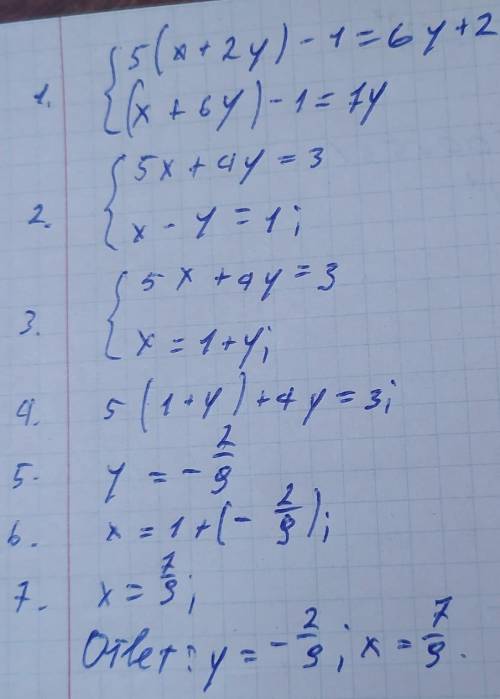 1. { 5(x + 2y) - 1 = 6y + 2
(x + 6y) - 1 = 7y
2. { 5x + 4y = 3
x - y = 1;
3. { 5x + 4y = 3
x = 1 + y;
4. 5(1 + y) + 4y = 3;
5. y = -2/9
6. x = 1 + (-2/9);
7. x = 7/9;
Ответ: y = -2/9; x = 7/9.